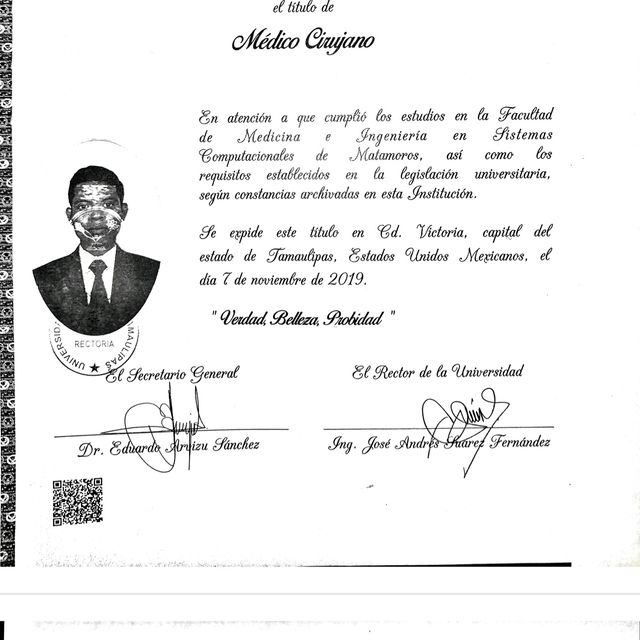 el título de
Médico Cirujano
En atención a que cumplió los estudios en la Facultad
de Medicina e Ingeniería en Sistemas
Computacionales de Matamoros, así como los
requisitos establecidos en la legislación universitaria,
según constancias archivadas en esta Institución.
Se expide este título en Cd. Victoria, capital del
estado de Tamaulipas, Estados Unidos Mexicanos, el
día 7 de noviembre de 2019.
"Verdad, Belleza, Probidad "
RECTORIA
El Secretario General
El Rector de la Universidad
Dr. Eduardo Arvizu Sánchez
Ing. José Andrés Suárez Fernández